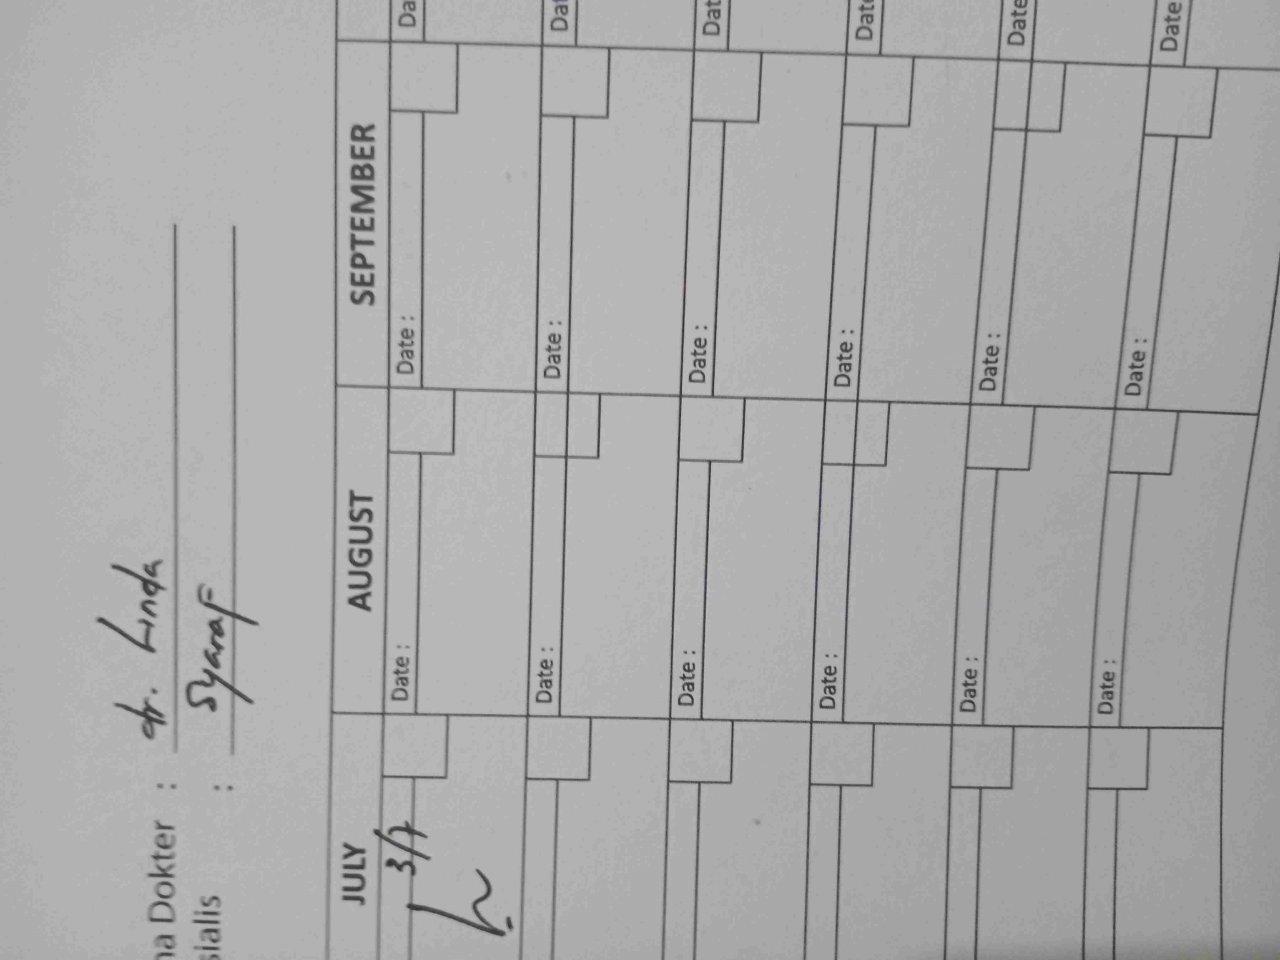 na Dokter : dr. Linda
sialis : Syaraf
JULY AUGUST SEPTEMBER
3/7 Date : Date : Da
Date : Date : Dat
Date : Date : Dat
Date : Date : Date
Date : Date : Date
Date : Date : Date